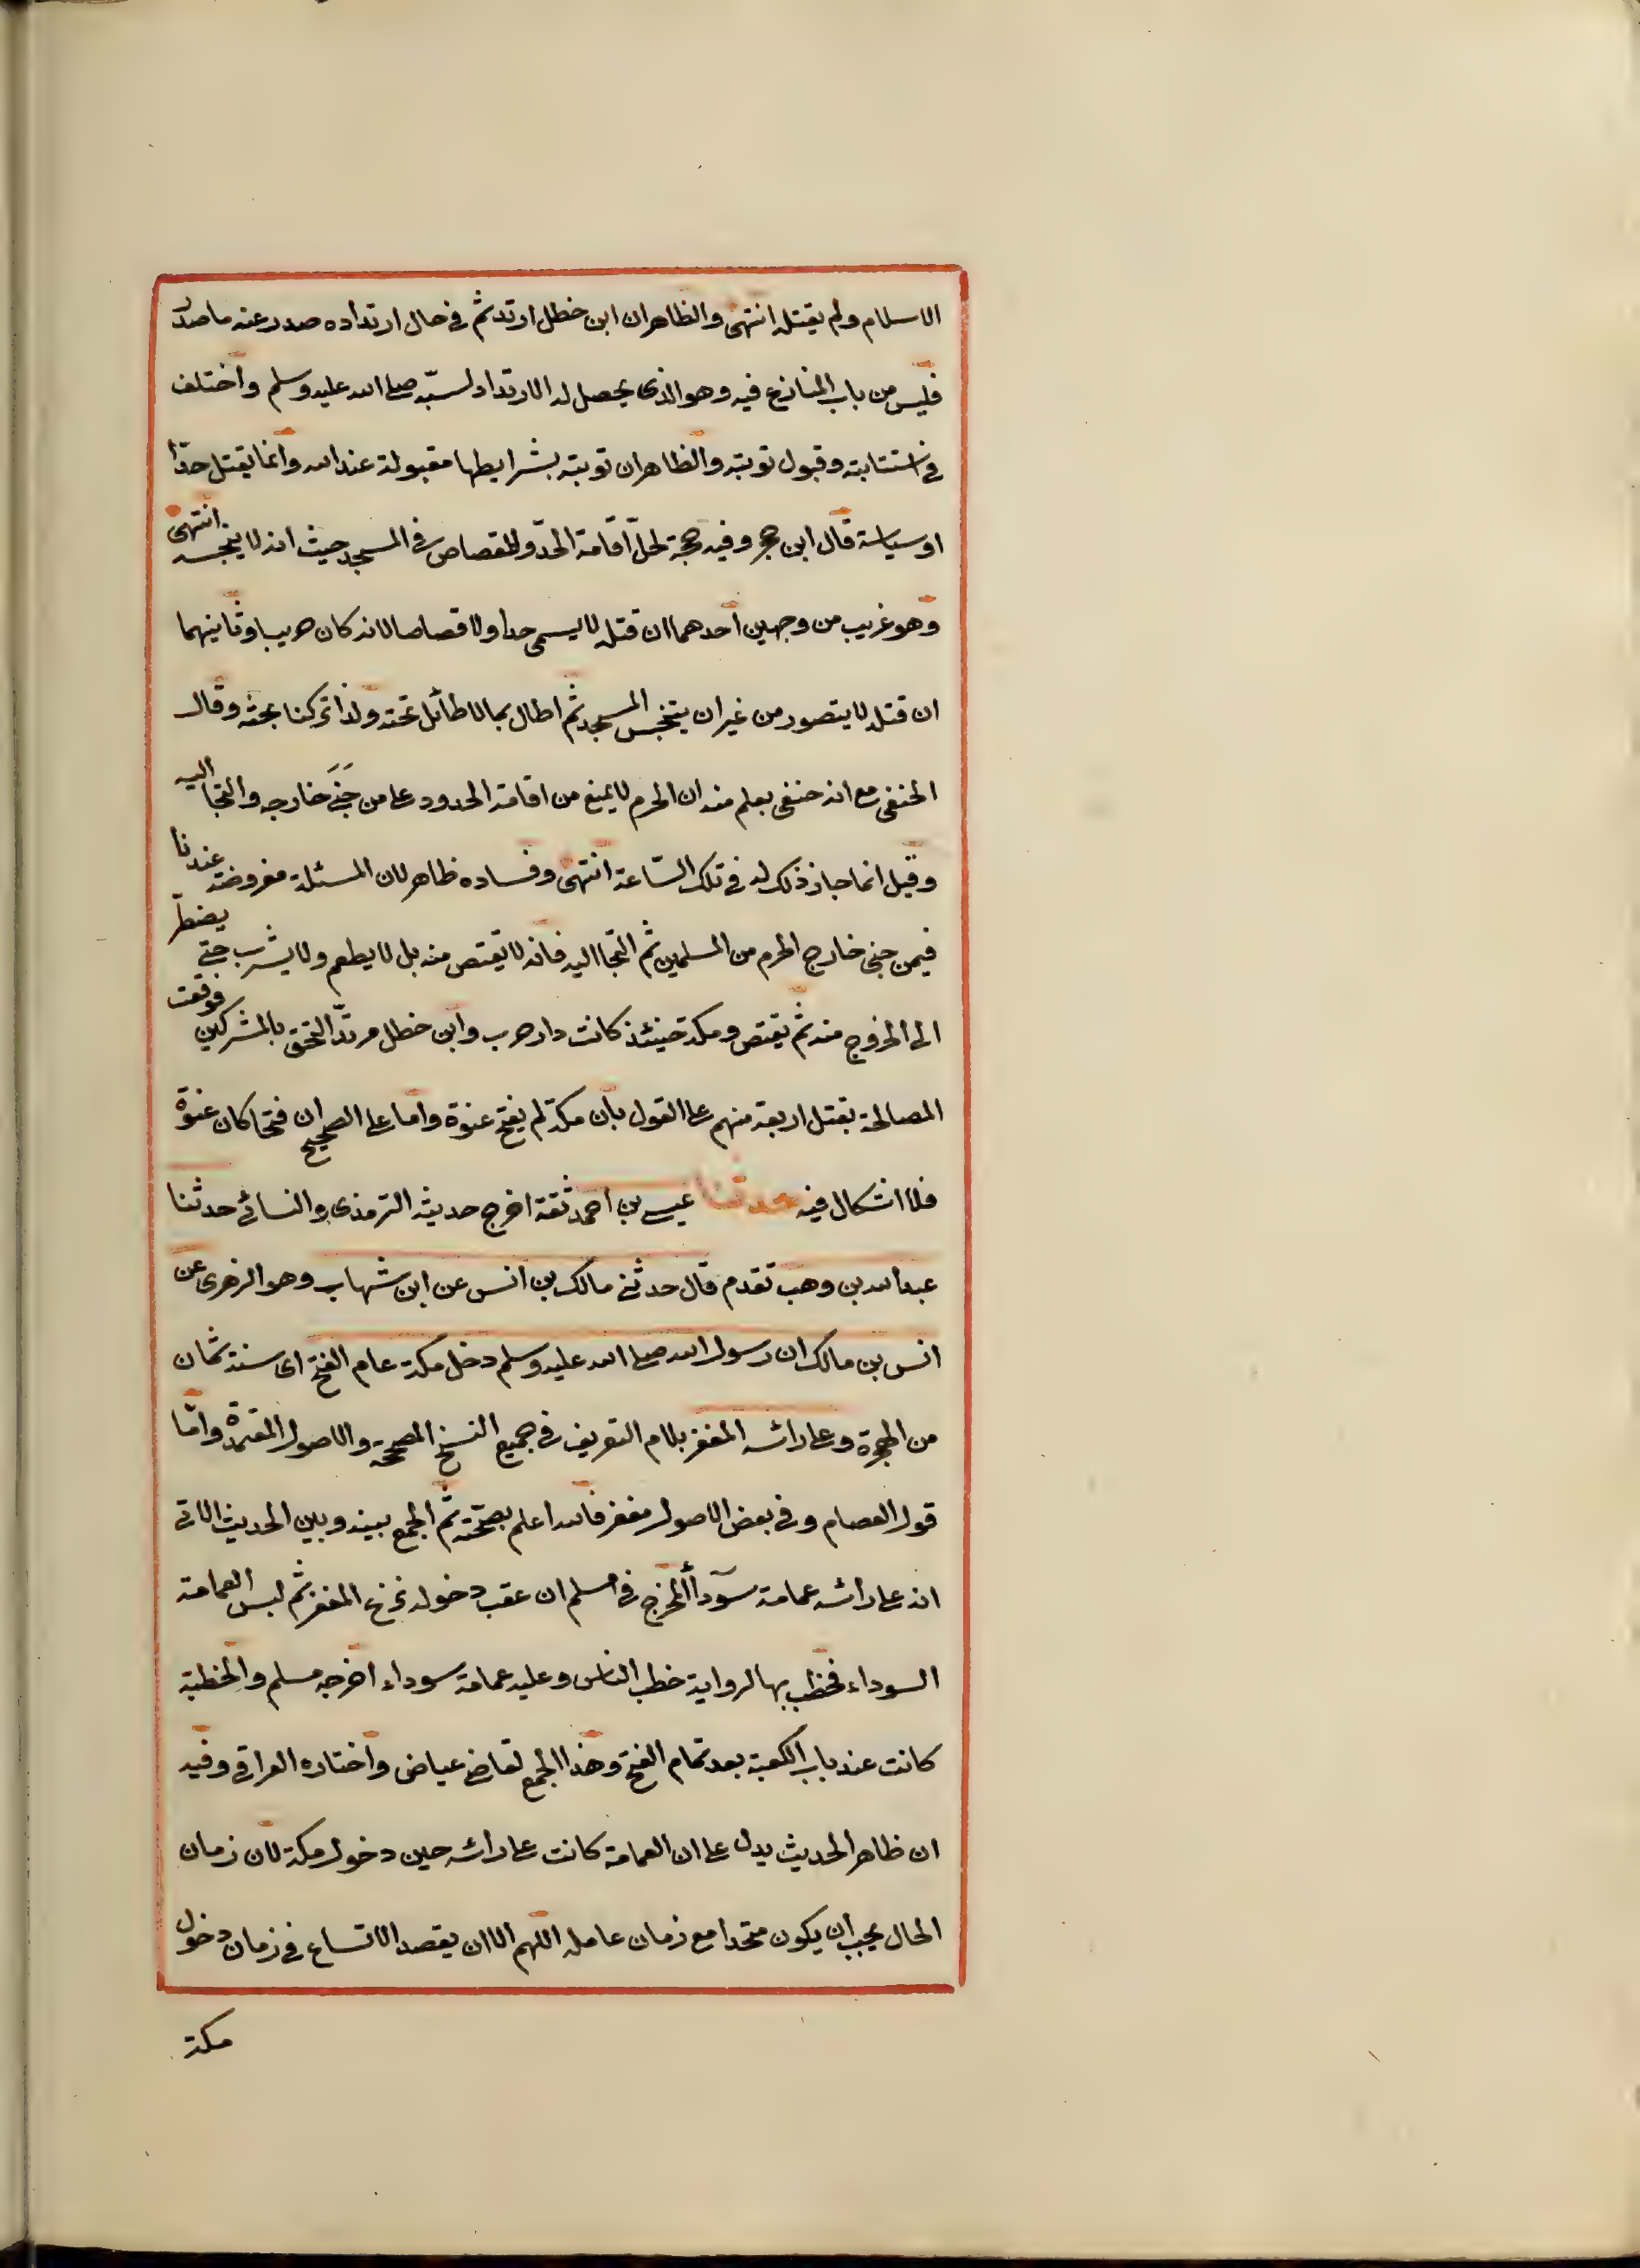 الاسلام ولم يقتله انتهى والظاهر ان ابن خطل ارتد ثم في حال ارتداده صدر عنه ما صدر
فليس من باب المنازع فيه وهو الذي يحصل له الارتداد لسبّه صلى الله عليه وسلم واختلف
في استتابته وقبول توبته والظاهر ان توبته بشرايطها مقبولة عند الله وانما يقتل حدّا
او سياسة قال ابن حجر وفيه حجة لحلّ اقامة الحدّ والقصاص في المسجد حيث انه لا ينجسه انتهى
وهو غريب من وجهين احدهما ان قتله لا يسمى حدا ولا قصاصا لانه كان حربيا وثانيهما
ان قتله لا يتصور من غير ان يتنجس المسجد ثم اطال بما لا طائل تحته ولذا تركنا بحثه وقال
الحنفى مع انه حنفى يعلم منه ان الحرم لا يمنع من اقامة الحدود على من جَنَى خارجه والتجا اليه
وقيل انما جاز ذلك له في تلك السّاعة انتهى وفساده ظاهر لان المسئلة مفروضة عندنا
فيمن جنى خارج الحرم من المسلمين ثم التجا اليه فانه لا يقتص منه بل لا يطعم ولا يشرب حتى يضطرّ
الى الخروج منه ثم يقتص ومكة حينئذ كانت دار حرب وابن خطل مرتدّا التحق بالمشركين فوقعت
المصالحة بقتل اربعة منهم على القول بان مكة لم يفتح عنوة واما على الصحيح ان فتحها كان عنوة
فلا اشكال فيه حدثنا عيسى بن احمد ثقة اخرج حديثه الترمذى والنسائى حدثنا
عبد الله بن وهب تقدم قال حدثنى مالك بن انس عن ابن شهاب وهو الزهرى عن
انس بن مالك ان رسول الله صلى الله عليه وسلم دخل مكة عام الفتح اى سنة ثمان
من الهجرة وعلى راسه المغفر بلام التعريف في جميع النسخ المصححة والاصول المعتمدة وامّا
قول العصام وفي بعض الاصول مغفر فالله اعلم بصحّته ثم الجمع بينه وبين الحديث الاتى
انه على راسه عمامة سودآء المخرج في مسلم ان عقب دخوله نزع المغفر ثم لبس العمامة
السوداء فخطب بها لرواية خطب الناس وعليه عمامة سوداء اخرجه مسلم والخطبة
كانت عند باب الكعبة بعد تمام الفتح وهذا الجمع لقاضى عياض واختاره العراقى وفيه
ان ظاهر الحديث يدل على ان العمامة كانت على راسه حين دخول مكة لان زمان
الحال يجب ان يكون متحدا مع زمان عامله اللهم الا ان يقصد الاتساع في زمان دخول
مكة